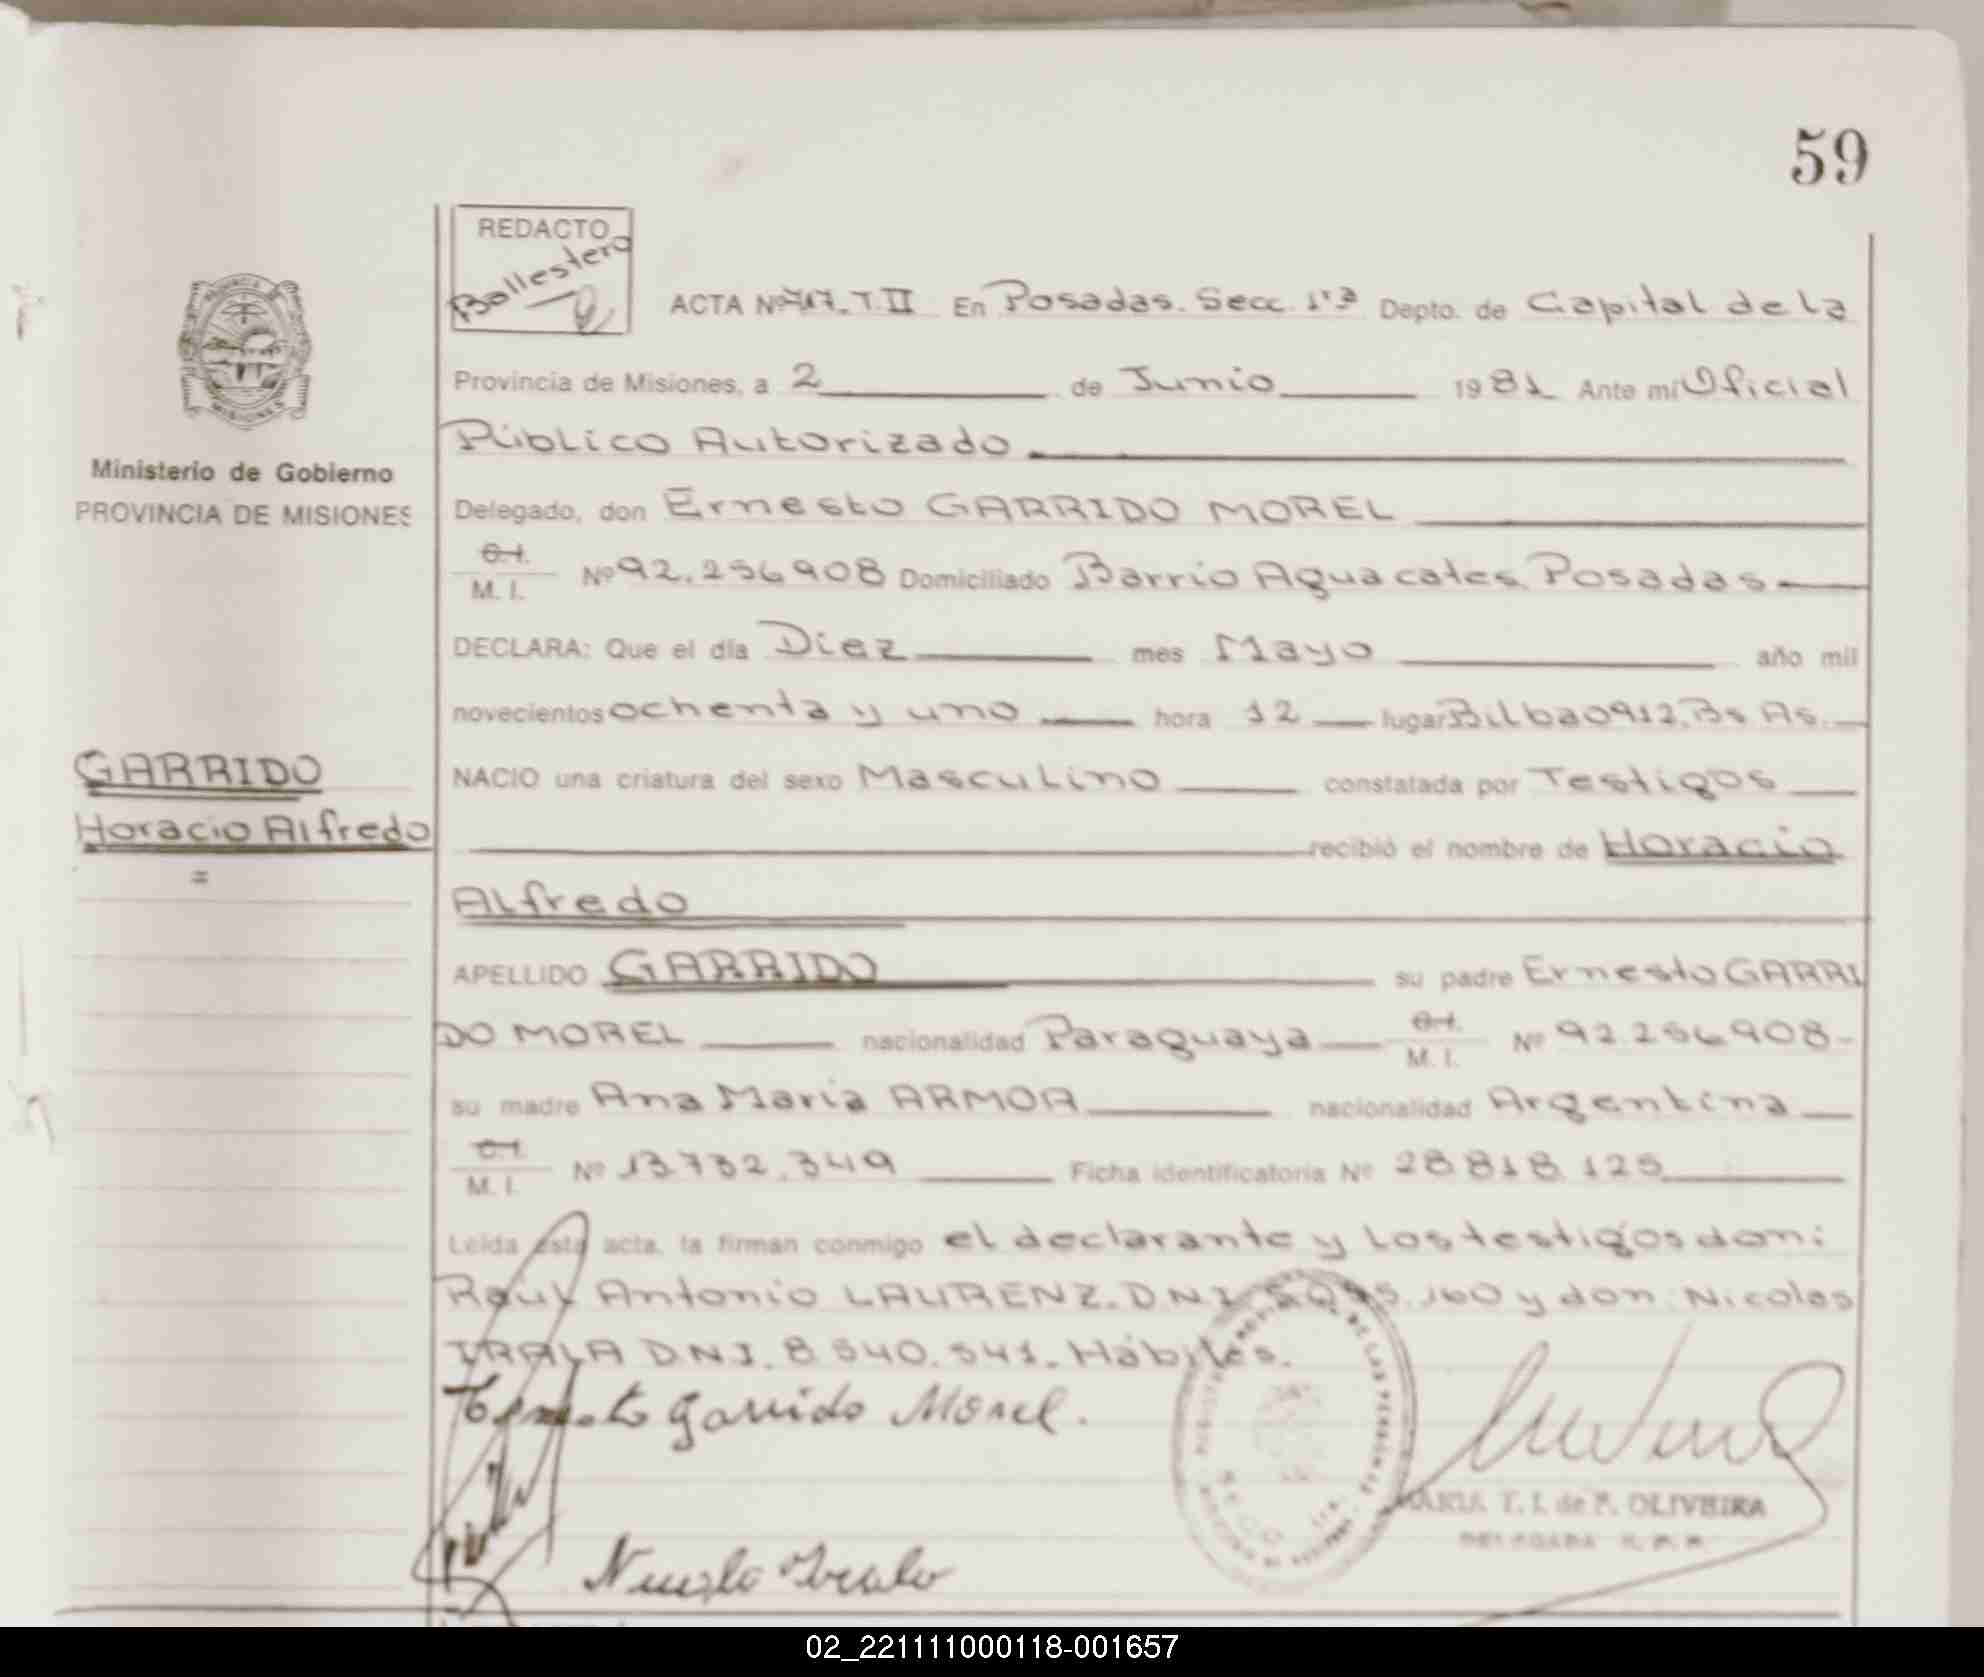 59
REDACTO
Ballestero
ACTA Nº 717. T. II En Posadas. Secc. 1ra Depto. de Capital de la
Provincia de Misiones, a 2 de Junio 1981 Ante mí Oficial
Público Autorizado
Ministerio de Gobierno
PROVINCIA DE MISIONES
Delegado, don Ernesto GARRIDO MOREL
C.I.
M. I. Nº 92.256908 Domiciliado Barrio Aguacates Posadas
DECLARA: Que el día Diez mes Mayo año mil
novecientos ochenta y uno hora 12 lugar Bilbao 912. Bs As.
GARRIDO
Horacio Alfredo
=
NACIO una criatura del sexo Masculino constatada por Testigos
recibió el nombre de Horacio
Alfredo
APELLIDO GARRIDO su padre Ernesto GARRI
DO MOREL nacionalidad Paraguaya C.I. M. I. Nº 92.256908-
su madre Ana María ARMOA nacionalidad Argentina
C.I.
M. I. Nº 13.732.349 Ficha identificatoria Nº 28.818.125
Leída esta acta, la firman conmigo el declarante y los testigos don:
Raúl Antonio LAURENZ. D.N.I. .160 y don: Nicolas
IRALA D.N.I. 8.540.541. Hábiles.
Ernesto Garrido Morel.
MARIA T. I. de F. OLIVEIRA
DELEGADA R. P. P.
02_221111000118-001657